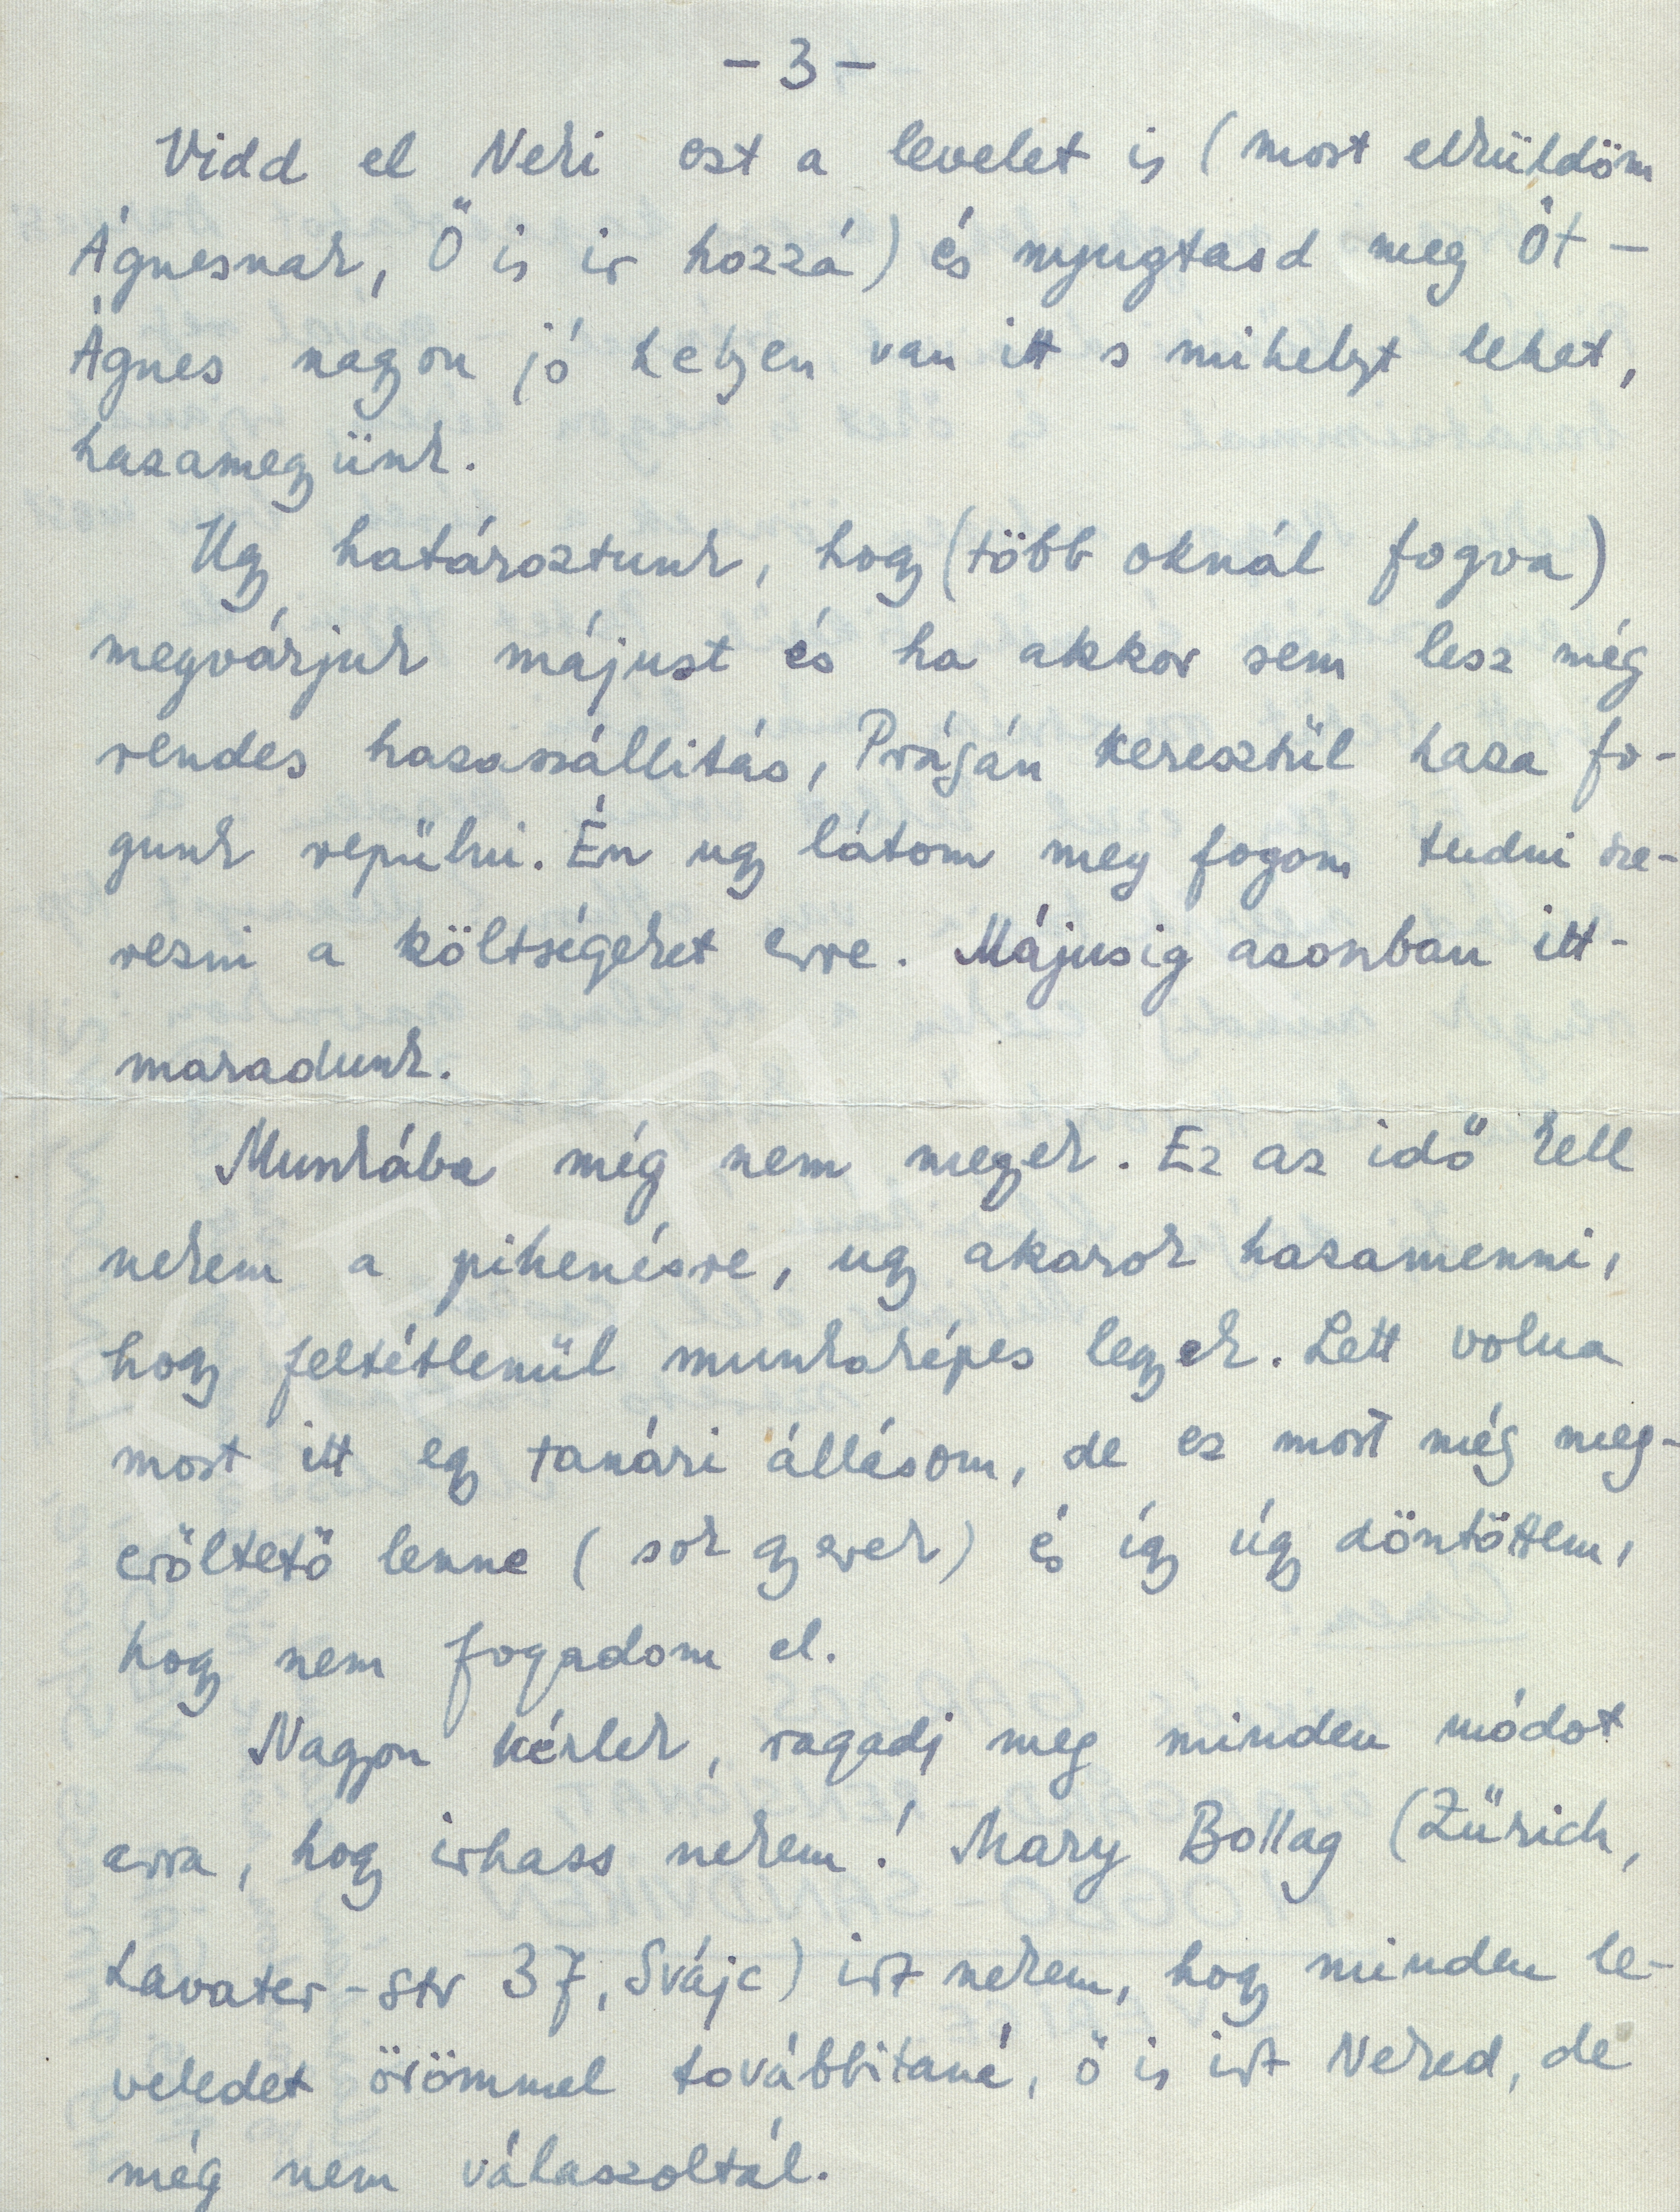 - 3 -
Vidd el Neki ezt a levelet is (most elküldöm
Ágnesnak, Ő is ir hozzá) és nyugtasd meg Őt -
Ágnes nagyon jó helyen van itt s mihelyt lehet,
hazamegyünk.
Ugy határoztunk, hogy (több oknál fogva)
megvárjuk májust és ha akkor sem lesz még
rendes hazaszállitás, Prágán keresztül haza fo-
gunk repülni. Én ugy látom meg fogom tudni sze-
rezni a költségeket erre. Májusig azonban itt-
maradunk.
Munkába még nem megyek. Ez az idő kell
nekem a pihenésre, ugy akarok hazamenni,
hogy feltétlenül munkaképes legyek. Lett volna
most itt egy tanári állásom, de ez most még meg-
erőltető lenne (sok gyerek) és így úgy döntöttem,
hogy nem fogadom el.
Nagyon kérlek, ragadj meg minden módot
arra, hogy irhass nekem! Mary Bollag (Zürich,
Lavater-str 37, Svájc) irt nekem, hogy minden le-
veledet örömmel továbbitaná, ő is irt Neked, de
még nem válaszoltál.